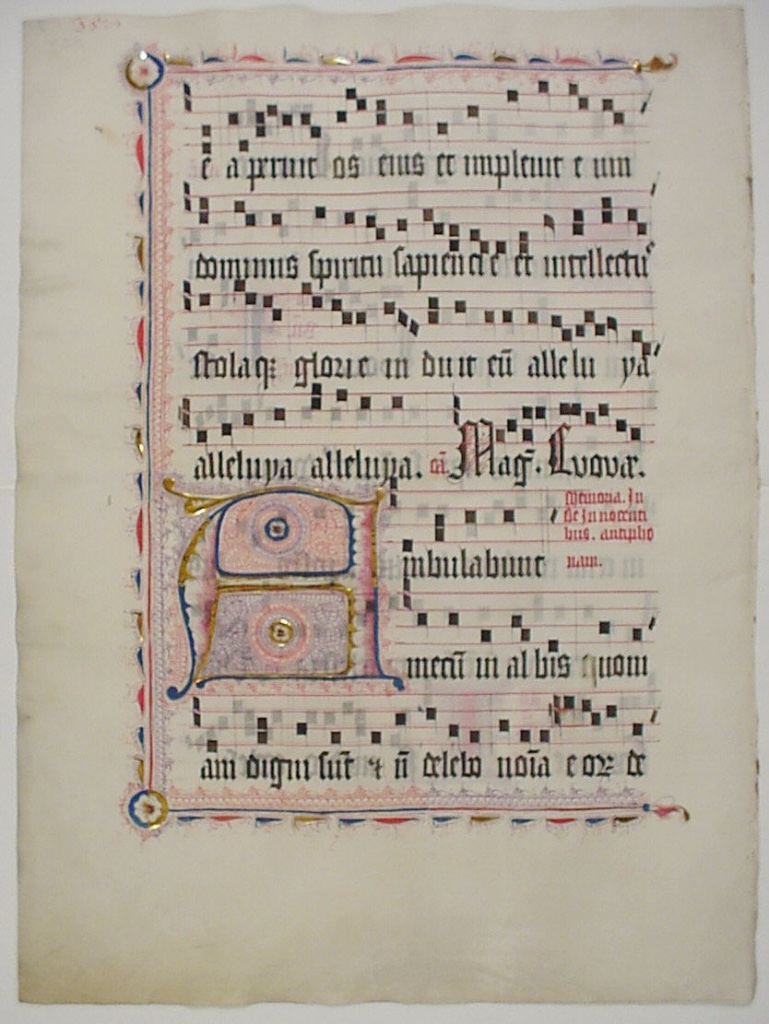 e aperuit os eius et impleuit eum
dominus spiritu sapiencie et intellectu
stolaqz glorie induit eū alleluya
alleluya alleluya. Mag̃. Euouae.
Memoria. In
de Innocenti
bus. antipho
nam.
Ambulabunt
mecū in albis quoni
am digni sūt et ñ delebo noīa eorz de